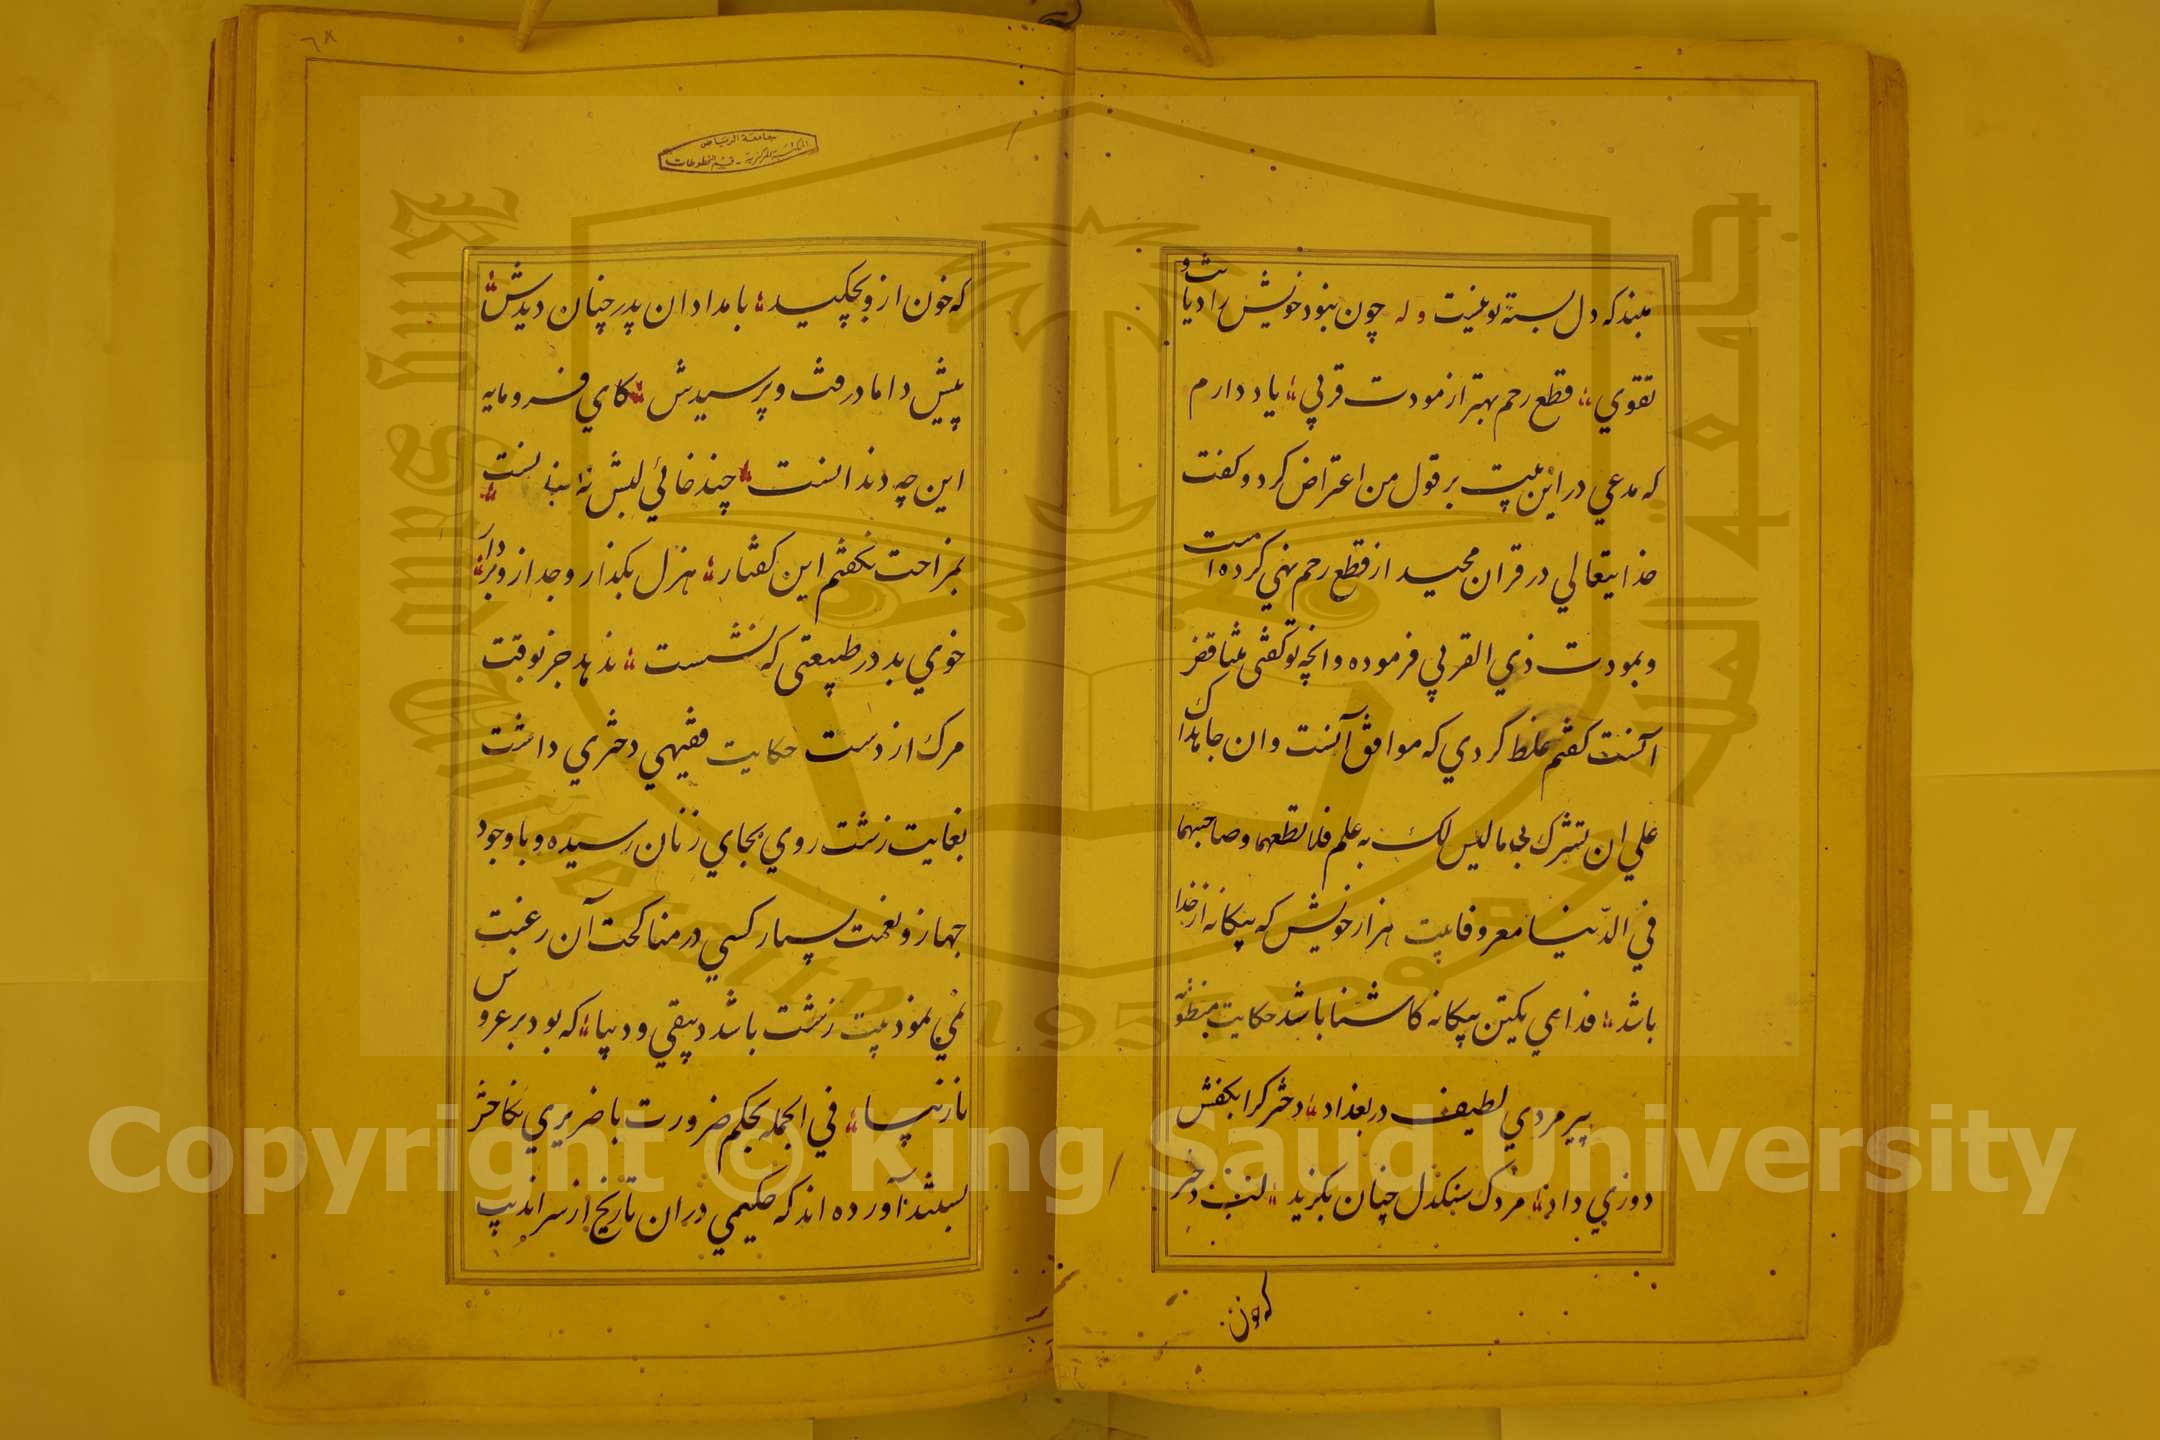 مبند که دل بسته تو نیست وله چون نبود خویش را دیانت و
تقوي قطع رحم بهتر از مودت قربي ياد دارم
که مدعي در این بیت بر قول من اعتراض کرد و کفت
خدایتعالي در قران مجید از قطع رحم نهي کرده است
و بمودت ذي القربي فرموده وانچه تو کفتی مناقض
آنست کفتم غلط کردي که موافق آنست وان جاهداک
علي ان تشرك بي ما ليس لك به علم فلا تطعهما وصاحبهما
في الدّنيا معروفا بیت هزار خویش که بیکانه از خدا
باشد فداي یکتن بیکانه کاشنا باشد حکایت منظومه
پیر مردي لطیف در بغداد دخترکرا بکفش
دوزي داد مردك سنکدل چنان بکزید لب دختر
که خون
جامعة الرياض
المكتبة المركزية - قسم المخطوطات
٦٨
که خون ازو بچکید بامدادان پدر چنان دیدش
پیش داماد رفت و پرسیدش کاي فرومایه
این چه دندانست چند خائي لبش نه انبانست
بمزاحت نکفتم این کفتار هزل بکذار و جد ازو بردار
خوي بد در طبیعتی که نشست ندهد جز بوقت
مرك از دست حکایت فقیهي دختري داشت
بغایت زشت روي بجاي زنان رسیده و با وجود
جهاز و نعمت بسیار کسي در مناکحت آن رغبت
نمي نمود بیت زشت باشد دبیقي و دیبا که بود بر عروس
نازیبا في الجمله بحکم ضرورت با ضریري نکاحش
ببستند آورده اند که حکیمي در ان تاریخ از سراندیب
King Saud University
جامعة الملك سعود
1957
Copyright © King Saud University